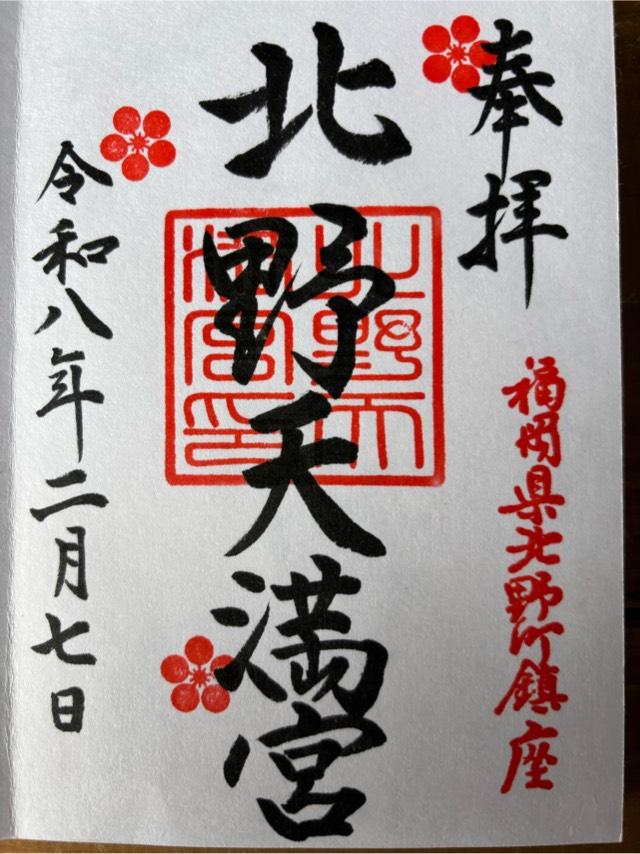 奉拝
福岡県北野町鎮座
北野天満宮
北野天
満宮印
令和八年二月七日